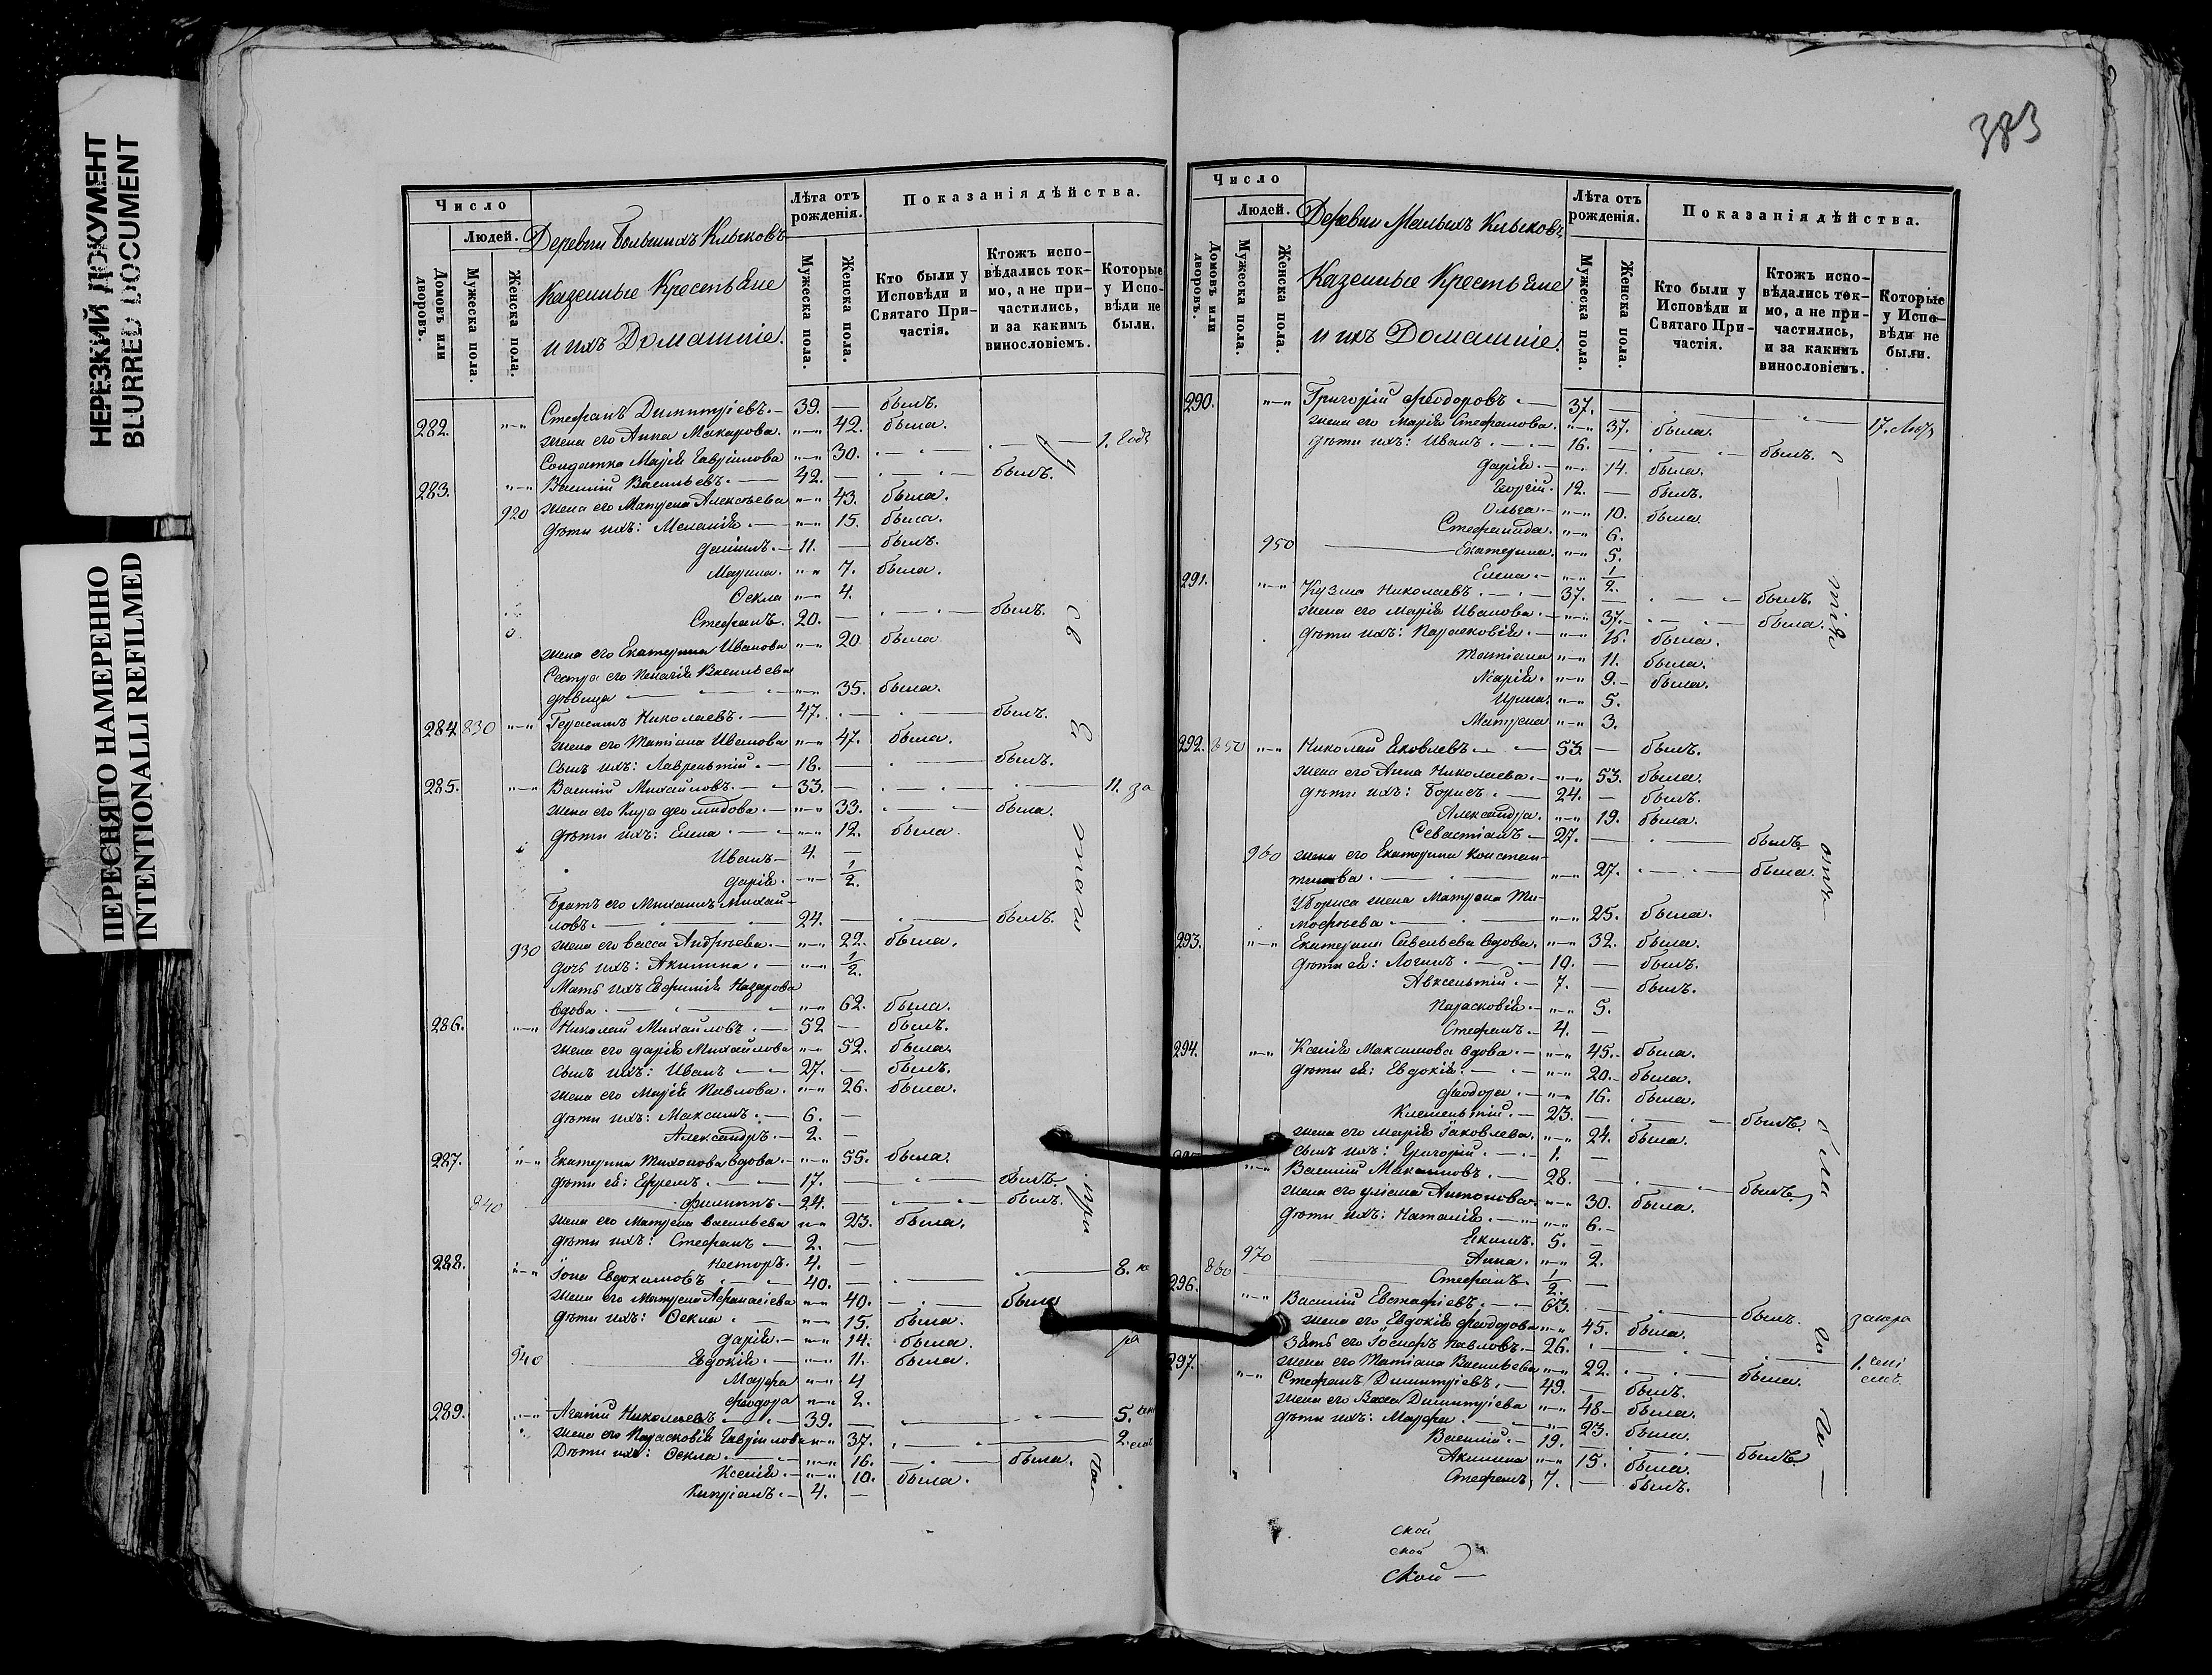 НЕРЕЗКИЙ ДОКУМЕНТ
BLURRED DOCUMENT
ПЕРЕСНЯТО НАМЕРЕННО
INTENTIONALLI REFILMED
Число
Людей.
Домовъ или дворовъ.
Мужеска пола.
Женска пола.
Деревни Большихъ Клыковъ
Казенные Крестьяне
и ихъ Домашніе.
Лѣта отъ рожденія.
Мужеска пола.
Женска пола.
Показанія дѣйства.
Кто были у Исповѣди и Святаго Причастія.
Ктожъ исповѣдались токмо, а не причастились, и за какимъ винословіемъ.
Которые у Исповѣди не были.
282. Стефанъ Димитріевъ. 39. — былъ.
жена его Анна Макарова. 42. была.
Солдатка Марія Гавріилова 30. 1. годъ
283. Василій Васильевъ. 42. — былъ.
920 жена его Матрена Алексѣева 43. была.
дѣти ихъ: Меланія. 15. была.
Даніилъ. 11. — былъ.
Марина. 7. была.
Ѳекла 4.
Стефанъ. 20. — былъ.
жена его Екатерина Иванова 20. была
Сестра его Пелагія Васильева
дѣвица 35. была.
284. 830 Герасимъ Николаевъ. 47. былъ.
жена его Татіана Иванова 47. была.
Сынъ ихъ: Лаврентій. 18. — былъ.
285. Василій Михайловъ. 33. — 11. за
жена его Кира 33. была.
дѣти ихъ: Елена. 12. была.
Иванъ 4. —
Дарія. 1/2.
Братъ его Михаилъ Михай-
ловъ. 24. — былъ.
930 жена его Васса Андреева. 22. была.
дочь ихъ: Акилина. 1/2.
Мать ихъ Евфимія Назарова
вдова. 62. была.
286. Николай Михайловъ. 52 — былъ.
жена его Дарія Михайлова 52. была.
Сынъ ихъ: Иванъ 27. — былъ.
жена его Марія Павлова. 26. была.
дѣти ихъ: Максимъ. 6. —
Александръ. 2. —
287. Екатерина Тихонова вдова. 55. была.
дѣти ея: Ефремъ. 17. — былъ.
840 Филиппъ 24. — былъ.
жена его Матрена Васильева 23. была.
дѣти ихъ: Стефанъ 2. —
Несторъ. 4. —
288. Іона Евдокимовъ 40. — 8.
жена его Матрена Афанасіева 40. была
дѣти ихъ: Ѳекла 15. была.
Дарія. 14. была.
940 Евдокія. 11. была.
Марфа 4
Феодора 2.
289. Агапій Николаевъ 39. — 5.
жена его Парасковія Гавріилова 37. 2.
Дѣти ихъ: Ѳекла. 16. была.
Ксенія. 10. была.
Кипріанъ. 4. —
383
Число
Людей.
Домовъ или дворовъ.
Мужеска пола.
Женска пола.
Деревни Малыхъ Клыковъ
Казенные Крестьяне
и ихъ Домашніе.
Лѣта отъ рожденія.
Мужеска пола.
Женска пола.
Показанія дѣйства.
Кто были у Исповѣди и Святаго Причастія.
Ктожъ исповѣдались токмо, а не причастились, и за какимъ винословіемъ.
Которые у Исповѣди не были.
290. Григорій Феодоровъ 37. — 17.
жена его Марія Стефанова. 37. была.
дѣти ихъ: Иванъ. 16. — былъ.
Дарія. 14. была.
Георгій. 12. — былъ.
Ольга. 10. была
Стефанида. 6.
950 Екатерина. 5.
Елена. 1/2.
291. Кузма Николаевъ. 37. — былъ.
жена его Марія Иванова. 37. была.
дѣти ихъ: Парасковія. 15. была.
Татіана 11. была.
Марія. 9. была.
Ирина. 5.
Матрена 3.
292. 850 Николай Яковлевъ. 53. — былъ.
жена его Анна Николаева. 53. была.
дѣти ихъ: Борисъ. 24. — былъ.
Александра. 19. была.
Севастіанъ 27. — былъ.
960 жена его Екатерина Констан-
тинова. 27. была.
У Бориса жена Матрена Ти-
мофѣева 25. была.
293. Екатерина Савельева вдова. 32. была.
дѣти ея: Логинъ. 10. — былъ.
Авксентій. 7. — былъ.
Парасковія. 5.
Стефанъ. 4. —
294. Ксенія Максимова вдова. 45. была.
дѣти ея: Евдокія. 20. была.
Феодора. 16. была.
Клементій. 23. — былъ.
жена его Марія Іаковлева. 24. была.
Сынъ ихъ: Григорій. 1. —
Василій Максимовъ. 28. — былъ.
жена его Антонова 30. была.
дѣти ихъ: Наталія. 6.
Екимъ. 5. —
970 Анна. 2.
860 Стефанъ 1/2. —
296. Василій Евстафіевъ. 63. былъ.
жена его Евдокія Феодорова 45. была.
Зять его Іосифъ Павловъ. 26. 1.
жена его Татіана Васильева 22. была.
297. Стефанъ Димитріевъ. 49. — былъ.
жена его Васса Димитріева 48. была.
дѣти ихъ: Марфа. 23. была.
Василій. 19. — былъ.
Акилина 15. была.
Стефанъ. 7. — былъ.
ской
ской
ской